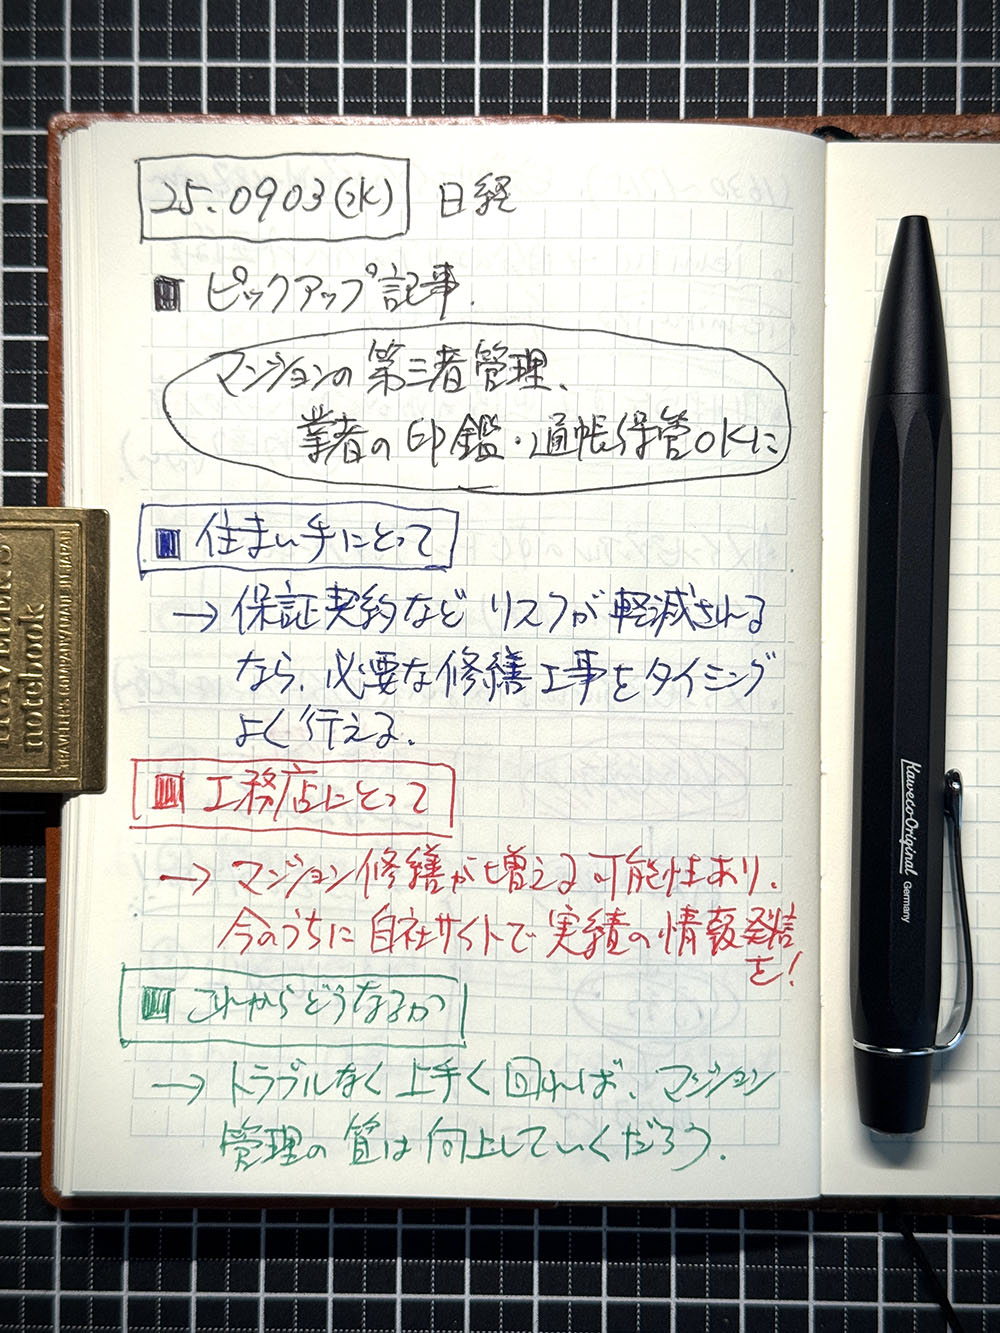 25.0903(水) 日経
■ ピックアップ記事.
マンションの第三者管理、
業者の印鑑・通帳保管OKに
■ 住まい手にとって
→ 保証契約など リスクが軽減される
なら、必要な修繕工事をタイミング
よく行える.
■ 工務店にとって
→ マンション修繕が増える可能性あり.
今のうちに自社サイトで実績の情報発信
を!
■ これからどうなるか
→ トラブルなく上手く回れば、マンション
管理の質は向上していくだろう.
TRAVELER'S
notebook
TRAVELER'S COMPANY MADE IN JAPAN
Kaweco Original Germany